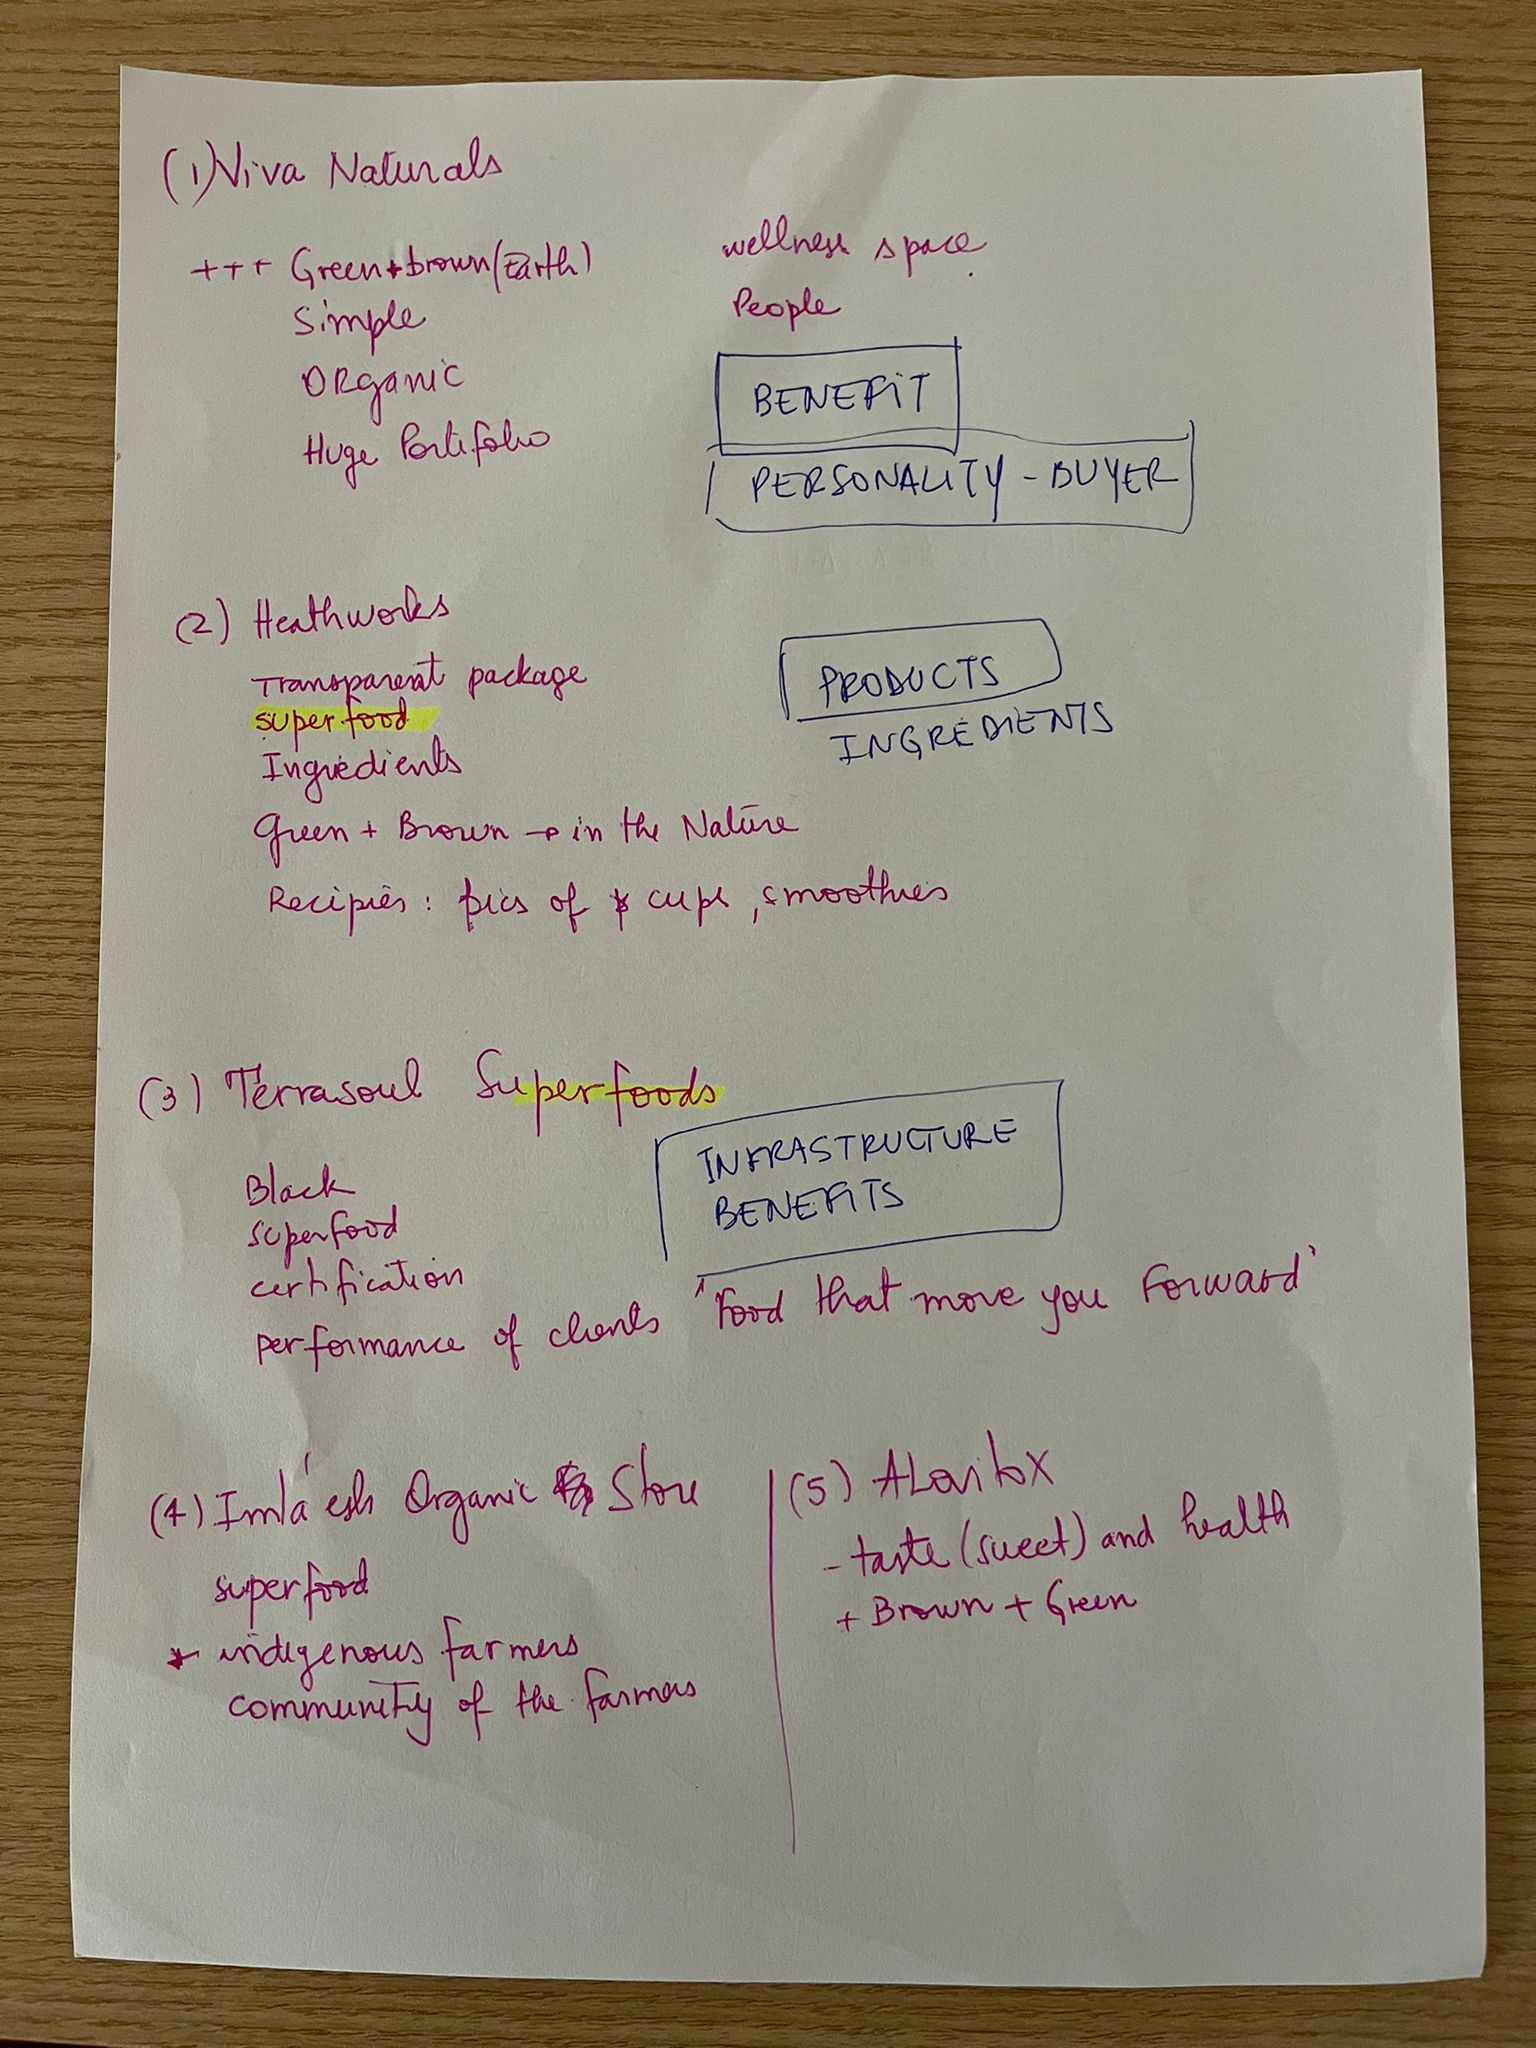 (1) Viva Naturals
+++ Green + brown (Earth)
Simple
ORganic
Huge Portifolio
wellness space
People
BENEFIT
PERSONALITY - BUYER
(2) Heathworks
Transparent package
superfood
Ingredients
Green + Brown → in the Nature
Recipies: pics of cups, smoothies
PRODUCTS
INGREDIENTS
(3) Terrasoul Superfoods
Black
superfood
certification
performance of clients 'Food that move you Forward'
INFRASTRUCTURE
BENEFITS
(4) Imla'esh Organic Store
superfood
* indigenous farmers
community of the farmers
(5)
- taste (sweet) and health
+ Brown + Green